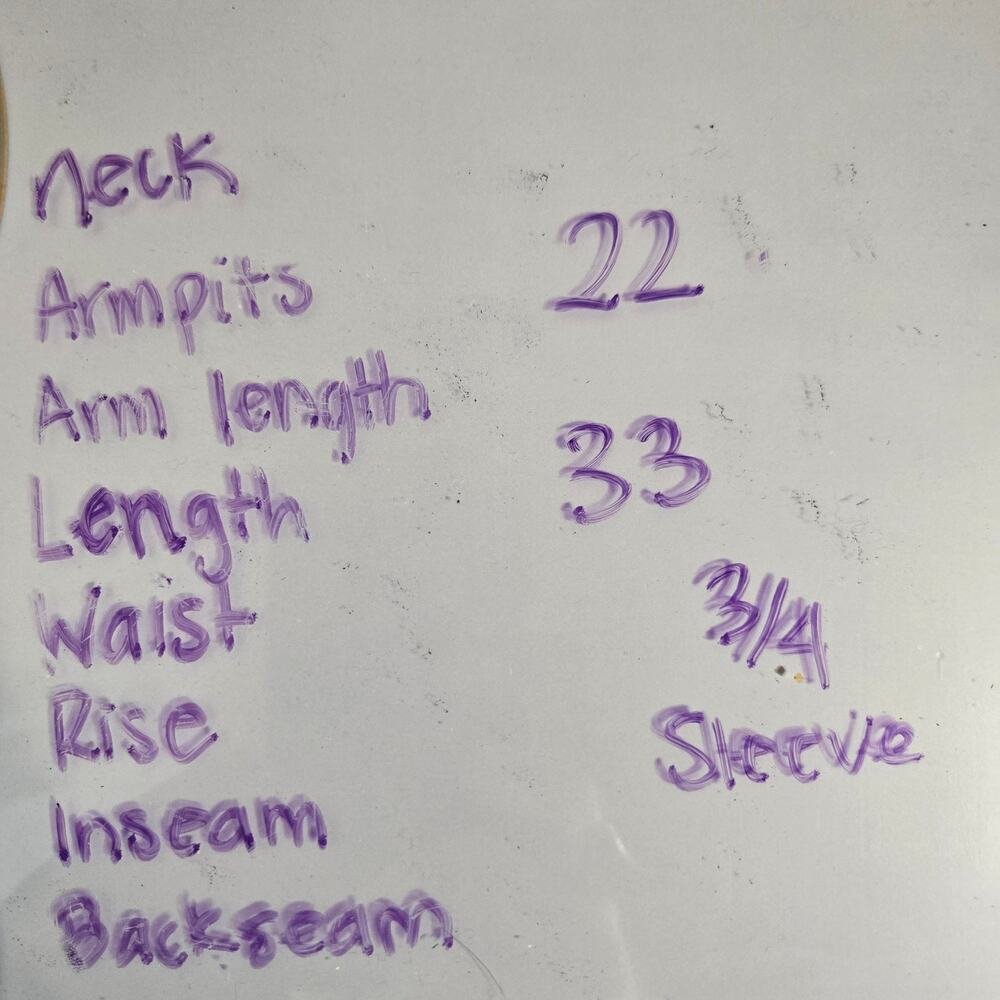 neck
Armpits 22
Arm length
Length 33
Waist
Rise
Inseam
Backseam
3/4
Sleeve